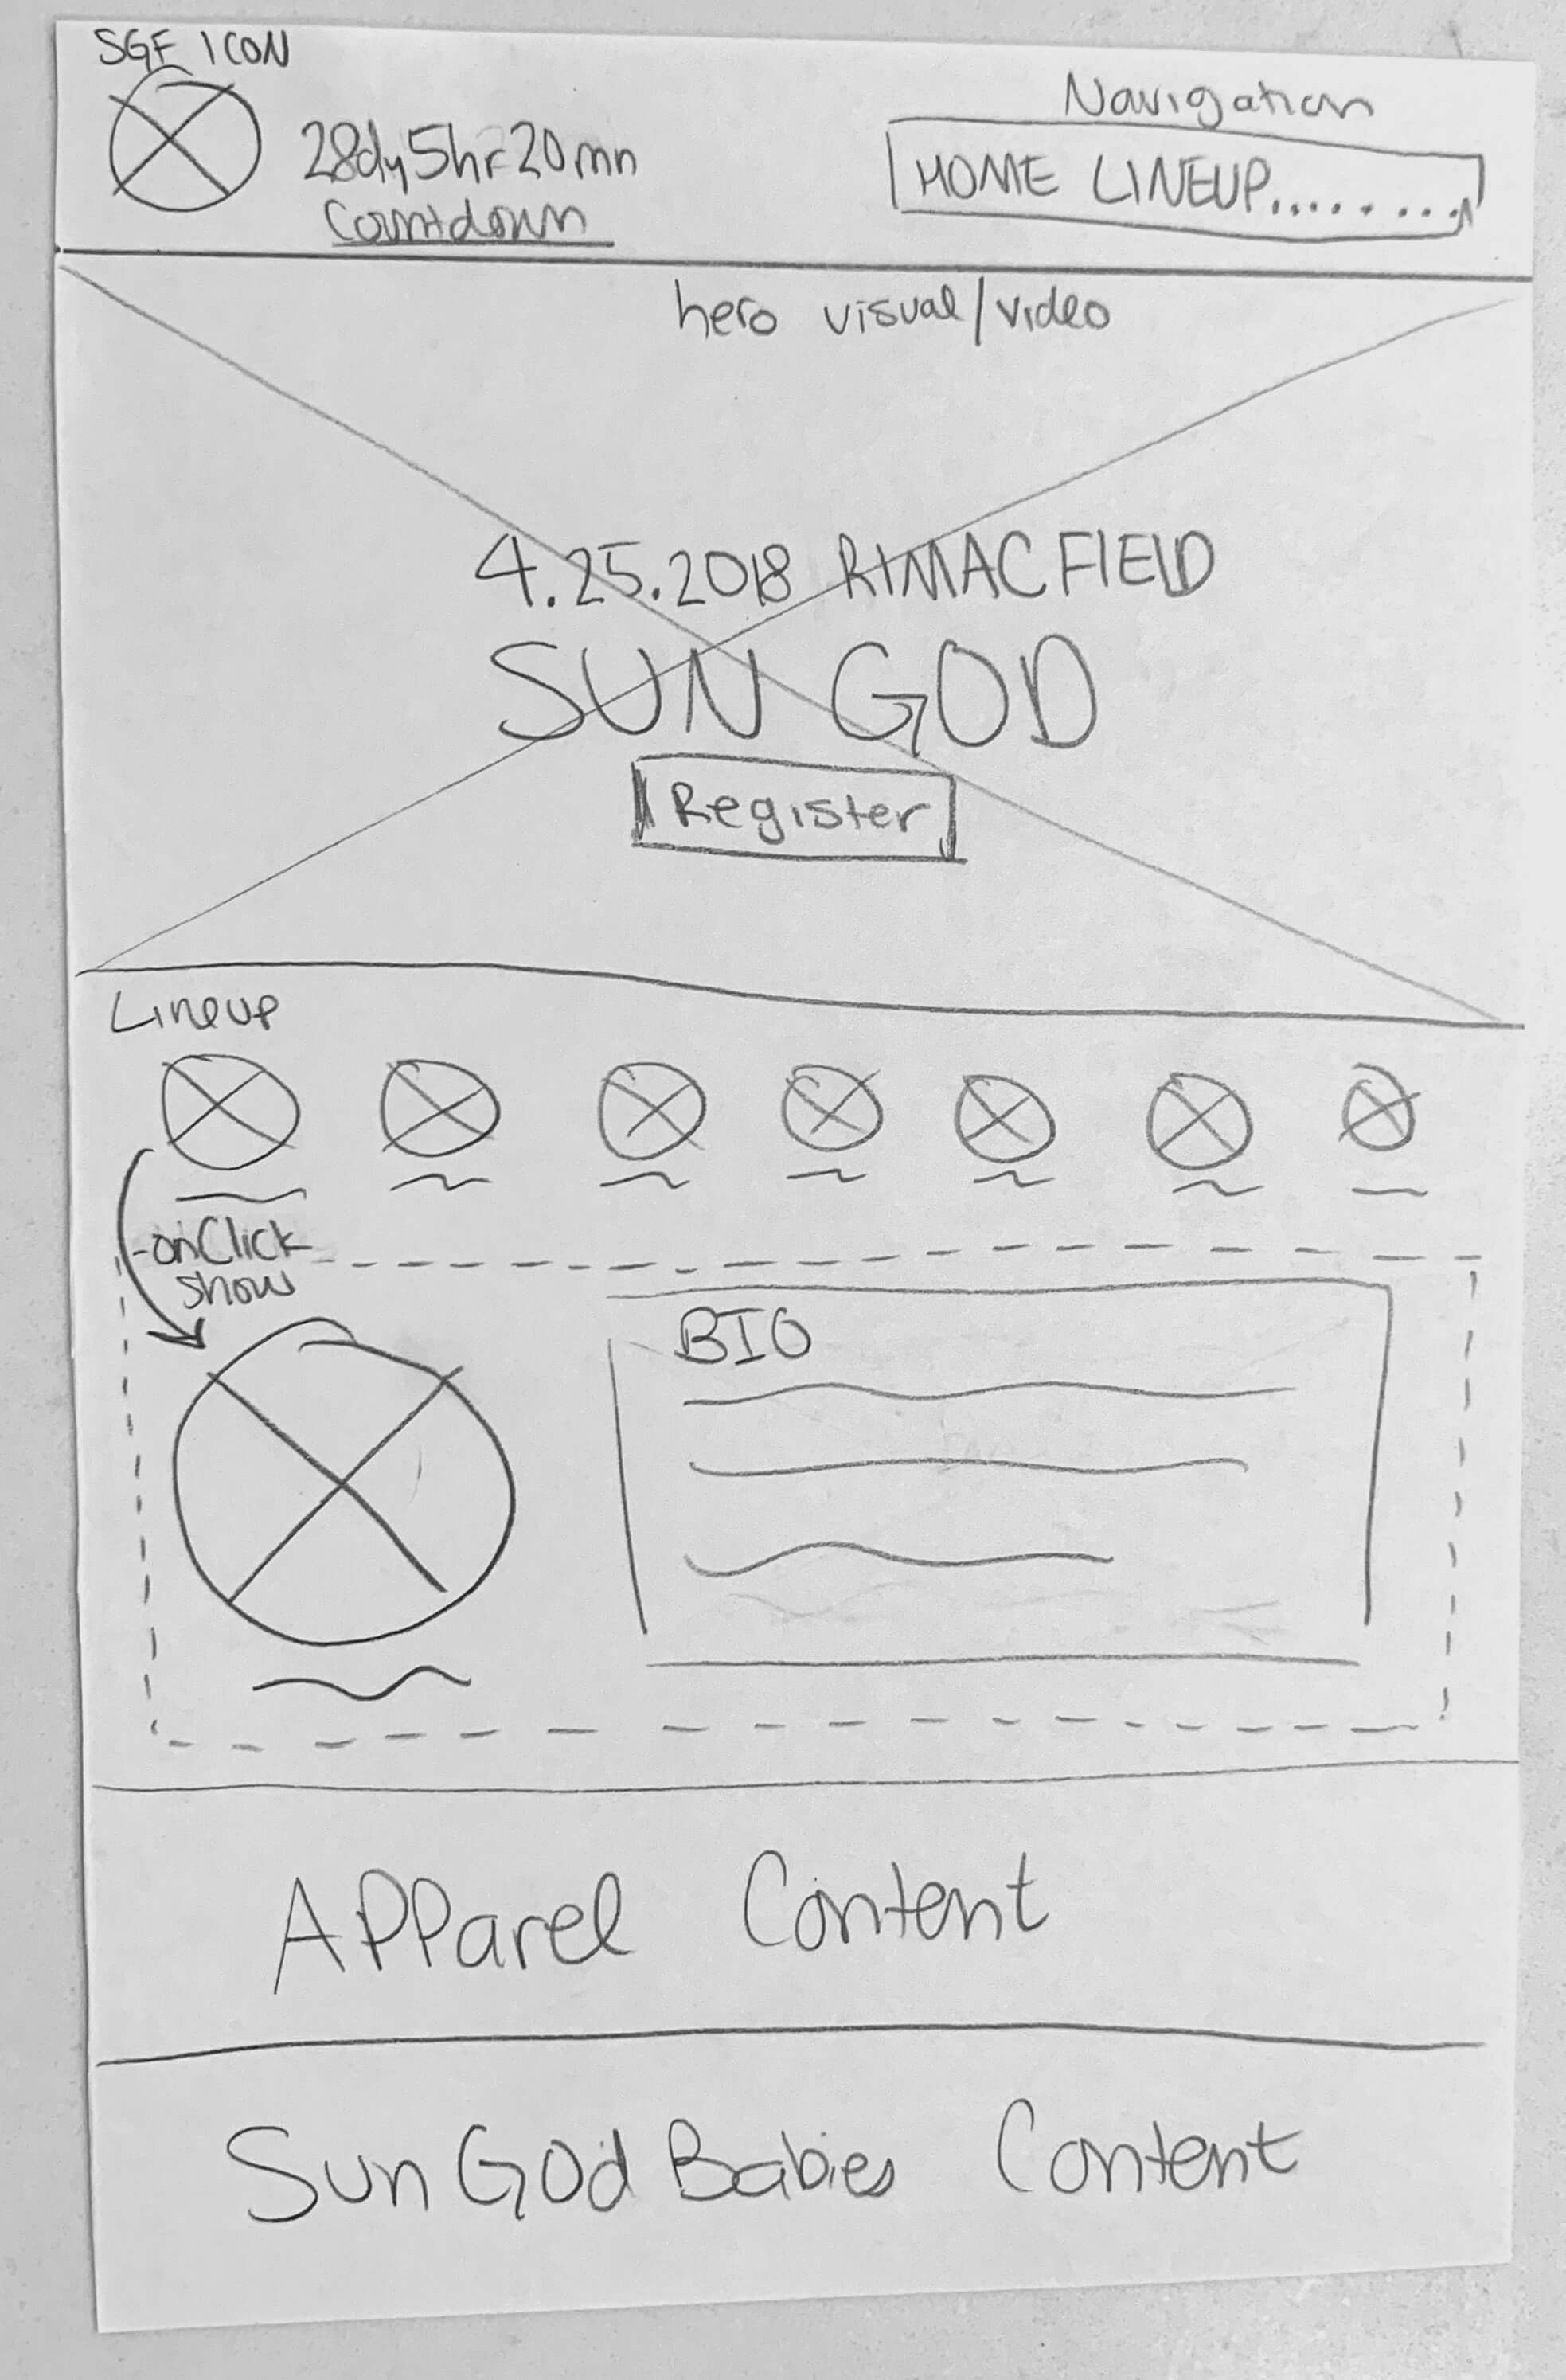 SGF ICON
28dy5hr20mn
Countdown
Navigation
HOME LINEUP........
hero visual/video
4.25.2018 RIMAC FIELD
SUN GOD
Register
Lineup
onClick
show
BIO
APParel Content
Sun God Babies Content